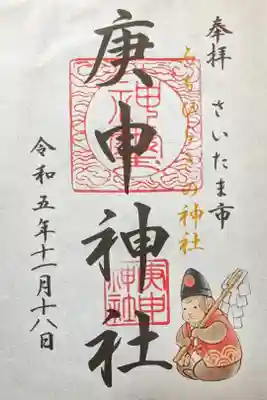 奉拝 さいたま市
みちひらきの神社
庚申神社
庚申神社
令和五年十一月十八日